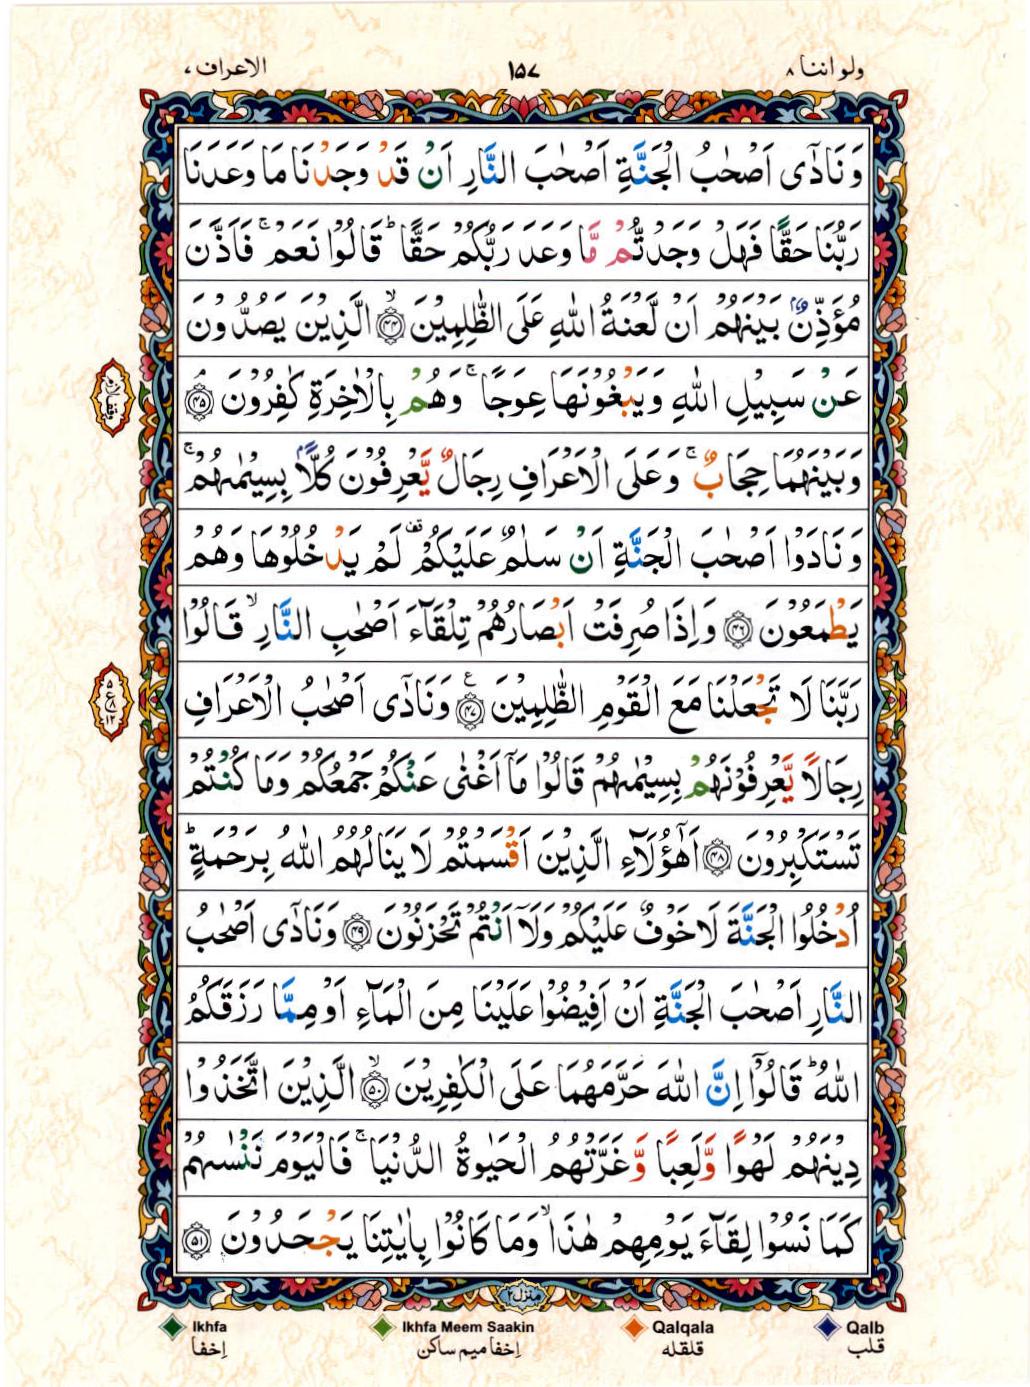 ولو اننا ٨
١٥٧
الاعراف ٧
وَ نَادٰۤى اَصۡحٰبُ الۡجَـنَّةِ اَصۡحٰبَ النَّارِ اَنۡ قَدۡ وَجَدۡنَا مَا وَعَدَنَا
رَبُّنَا حَقًّا فَهَلۡ وَجَدْتُّمۡ مَّا وَعَدَ رَبُّكُمۡ حَقًّا ؕ قَالُوۡا نَـعَمۡ ۚ فَاَذَّنَ
مُؤَذِّنٌۢ بَيۡنَهُمۡ اَنۡ لَّعۡنَةُ اللّٰهِ عَلَى الظّٰلِمِيۡنَ ۙ‏﴿۴۴﴾ الَّذِيۡنَ يَصُدُّوۡنَ
عَنۡ سَبِيۡلِ اللّٰهِ وَيَـبۡـغُوۡنَهَا عِوَجًا ۚ وَهُمۡ بِالۡاٰخِرَةِ كٰفِرُوۡنَ ۘ‏﴿۴۵﴾
وَبَيۡنَهُمَا حِجَابٌ ۚ وَعَلَى الۡاَعۡرَافِ رِجَالٌ يَّعۡرِفُوۡنَ كُلًّاۢ بِسِيۡمٰٮهُمۡ ۚ
وَنَادَوۡا اَصۡحٰبَ الۡجَـنَّةِ اَنۡ سَلٰمٌ عَلَيۡكُمۡ ۟ لَمۡ يَدۡخُلُوۡهَا وَهُمۡ
يَطۡمَعُوۡنَ ﴿۴۶﴾ وَاِذَا صُرِفَتۡ اَبۡصَارُهُمۡ تِلۡقَآءَ اَصۡحٰبِ النَّارِ ۙ قَالُوۡا
رَبَّنَا لَا تَجۡعَلۡنَا مَعَ الۡقَوۡمِ الظّٰلِمِيۡنَ ﴿۴۷﴾ وَنَادٰۤى اَصۡحٰبُ الۡاَعۡرَافِ
رِجَالًا يَّعۡرِفُوۡنَهُمۡ بِسِيۡمٰٮهُمۡ قَالُوۡا مَاۤ اَغۡنٰى عَنۡكُمۡ جَمۡعُكُمۡ وَمَا كُنۡتُمۡ
تَسۡتَكۡبِرُوۡنَ ﴿۴۸﴾ اَهٰٓؤُلَاۤءِ الَّذِيۡنَ اَقۡسَمۡتُمۡ لَا يَنَالُهُمُ اللّٰهُ بِرَحۡمَةٍ ؕ
اُدۡخُلُوا الۡجَـنَّةَ لَا خَوۡفٌ عَلَيۡكُمۡ وَلَاۤ اَنۡتُمۡ تَحۡزَنُوۡنَ ﴿۴۹﴾ وَنَادٰۤى اَصۡحٰبُ
النَّارِ اَصۡحٰبَ الۡجَـنَّةِ اَنۡ اَفِيۡضُوۡا عَلَيۡنَا مِنَ الۡمَآءِ اَوۡ مِمَّا رَزَقَكُمُ
اللّٰهُ ؕ قَالُوۡۤا اِنَّ اللّٰهَ حَرَّمَهُمَا عَلَى الۡكٰفِرِيۡنَ ۙ‏﴿۵۰﴾ الَّذِيۡنَ اتَّخَذُوۡا
دِيۡنَهُمۡ لَهۡوًا وَّلَعِبًا وَّغَرَّتۡهُمُ الۡحَيٰوةُ الدُّنۡيَا ۚ فَالۡيَوۡمَ نَنۡسٰٮهُمۡ
كَمَا نَسُوۡا لِقَآءَ يَوۡمِهِمۡ هٰذَا ۙ وَمَا كَانُوۡا بِاٰيٰتِنَا يَجۡحَدُوۡنَ ﴿۵۱﴾
وقف لازم
۵
ع
۸
۱۲
منزل ۲
Ikhfa Ikhfa Meem Saakin Qalqala Qalb
اِخفا اِخفا میم ساکن قلقله قلب